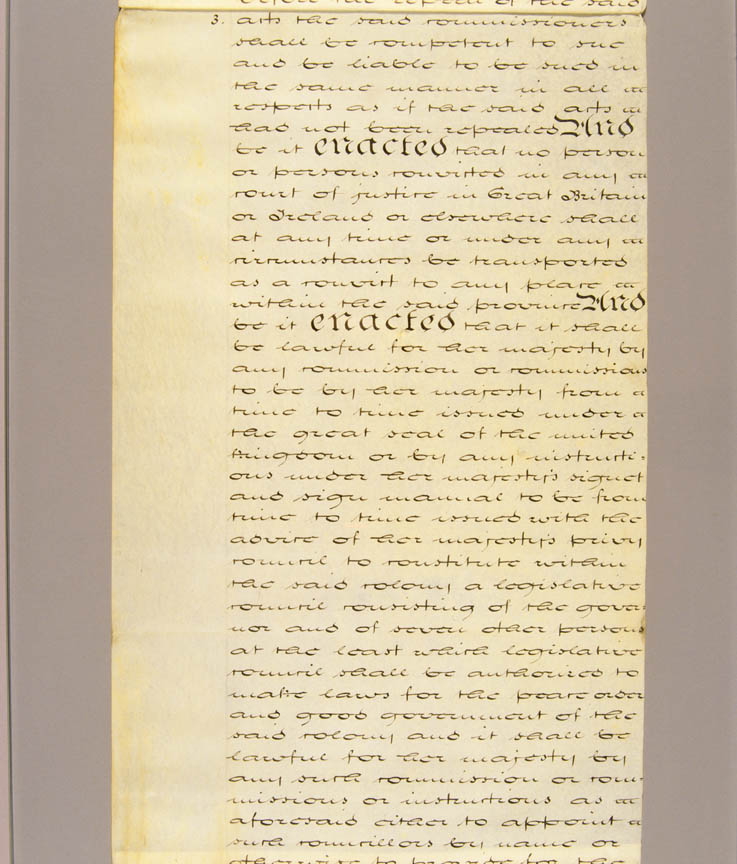 before the repeal of the said
3. acts the said commissioners
shall be competent to sue
and be liable to be sued in
the same manner in all
respects as if the said acts
had not been repealed And
be it enacted that no person
or persons convicted in any
court of justice in Great Britain
or Ireland or elsewhere shall
at any time or under any
circumstances be transported
as a convict to any place
within the said province And
be it enacted that it shall
be lawful for her majesty by
any commission or commissions
to be by her majesty from
time to time issued under
the great seal of the united
kingdom or by any instructi-
ons under her majesty's signet
and sign manual to be from
time to time issued with the
advice of her majesty's privy
council to constitute within
the said colony a legislative
council consisting of the gover-
nor and of seven other persons
at the least which legislative
council shall be authorized to
make laws for the peace order
and good government of the
said colony and it shall be
lawful for her majesty by
any such commission or com-
missions or instructions as
aforesaid either to appoint
such councillors by name or
otherwise to provide for the